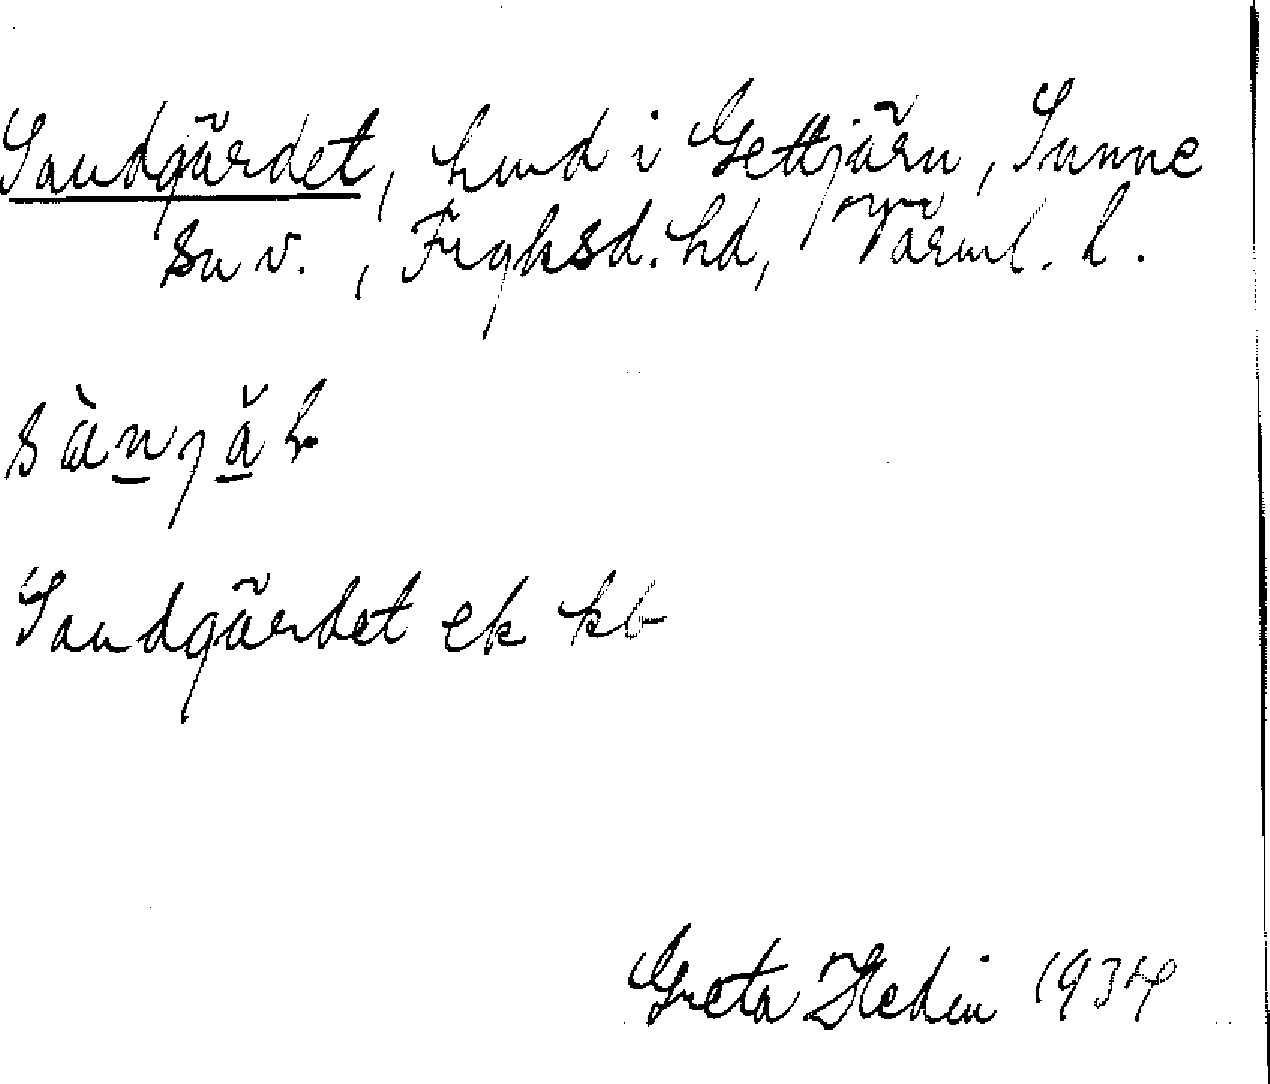 Sandgärdet, hmd i Gettjärn, Sunne
sn v., Fryksd. hd, Värml. l.
sànjăɫ
Sandgärdet ek kb
Greta Hedin 1934